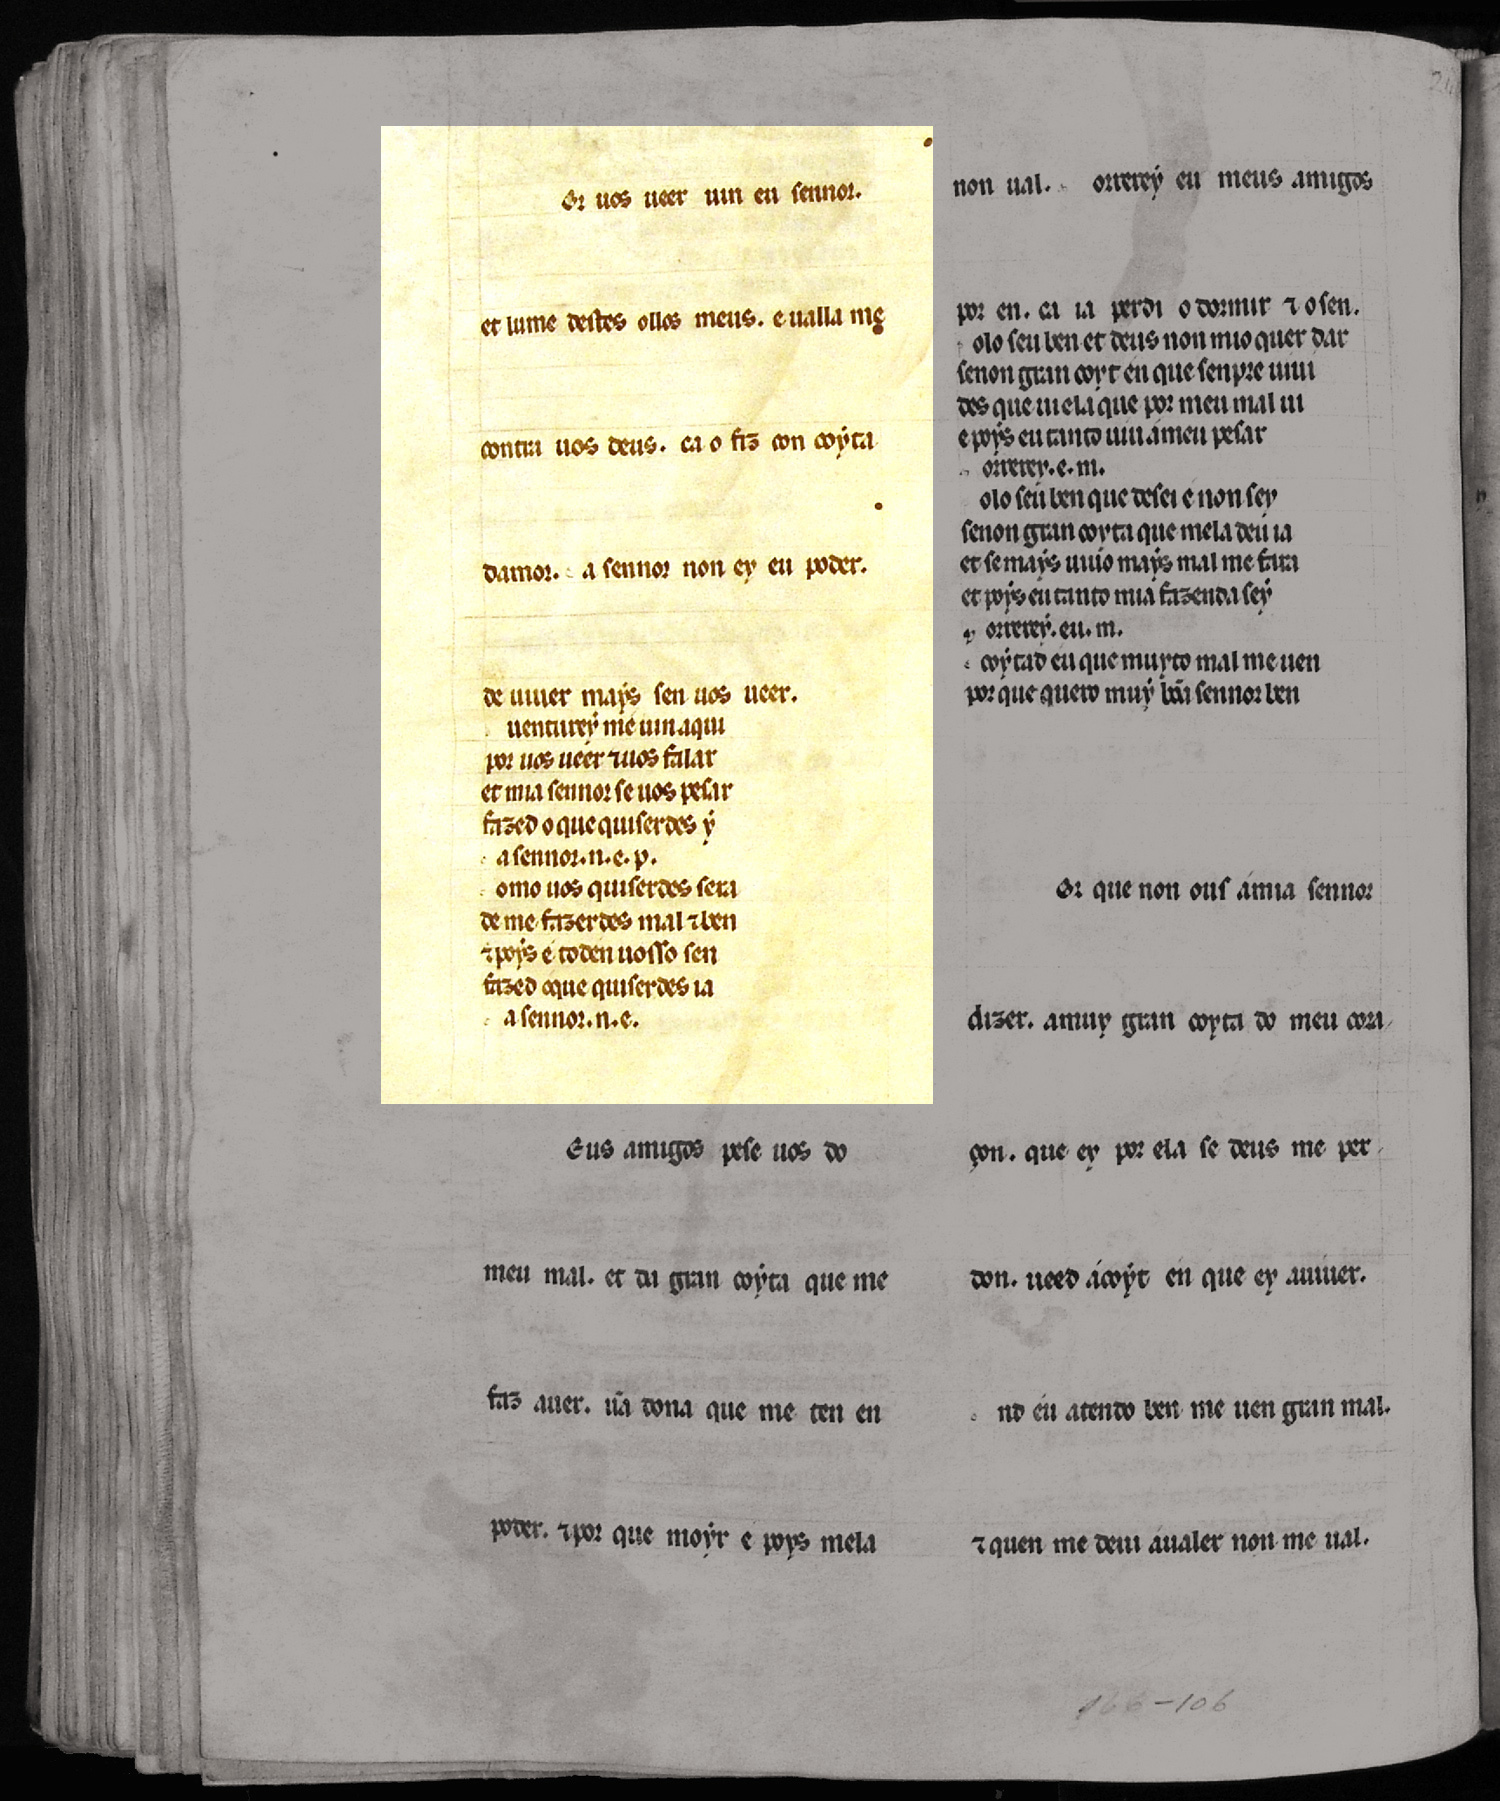 Or uos ueer uin eu sennor.
et lume destes ollos meus. e ualla me
contra uos deus. ca o fiz con coyta
damor. a sennor non ey eu poder.
de uiuer mays sen uos ueer.
uenturey me uin aqui
por uos ueer ⁊ uos falar
et mia sennor se uos pesar
fazed o que quiserdes y
a sennor. n. e. p.
omo uos quiserdes sera
de me fazerdes mal ⁊ ben
⁊ poys é toden uosso sen
fazed oque quiserdes ia
a sennor. n. e.
Eus amigos pese uos do
meu mal. et da gran coyta que me
faz auer. ũa dona que me ten en
poder. ⁊ por que moyr e poys mela
non ual. orrerey eu meus amigos
por en. ca ia perdi o dormir ⁊ o sen.
olo seu ben et deus non mio quer dar
senon gran coyt en que senpre uiui
des que ui ela que por meu mal ui
e poys eu tanto uiui a meu pesar
orrerey. e. m.
olo seu ben que desei e non sey
senon gran coyta que mela deu ia
et se mays uiuio mays mal me fara
et poys eu tanto mia fazenda sey
orrerey. eu. m.
coytad eu que muyto mal me uen
por que quero muy sennor ben
Or que non ous ámia sennor
dizer. amuy gran coyta do meu cora
çon. que ey por ela se deus me per
don. ueed ácoyt en que ey auiuer.
nd eu atendo ben me uen gran mal.
⁊ quen me deui áualer non me ual.
166-106